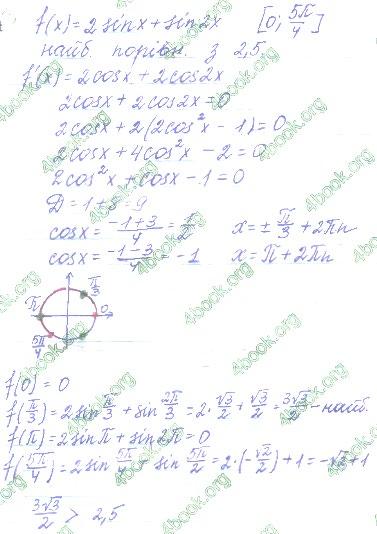 f(x) = 2 sinx + sin2x [0; 5π/4]
найб. порівн. з 2,5
f'(x) = 2cosx + 2cos2x
2cosx + 2cos2x = 0
2cosx + 2(2cos²x - 1) = 0
2cosx + 4cos²x - 2 = 0
2cos²x + cosx - 1 = 0
D = 1 + 8 = 9
cosx = (-1+3)/4 = 1/2 x = ± π/3 + 2πn
cosx = (-1-3)/4 = -1 x = π + 2πn
π/3
π 0
5π/4
f(0) = 0
f(π/3) = 2sin π/3 + sin 2π/3 = 2·√3/2 + √3/2 = 3√3/2 - найб.
f(π) = 2sinπ + sin2π = 0
f(5π/4) = 2sin 5π/4 + sin 5π/2 = 2·(-√2/2) + 1 = -√2 + 1
3√3/2 > 2,5
4book.org